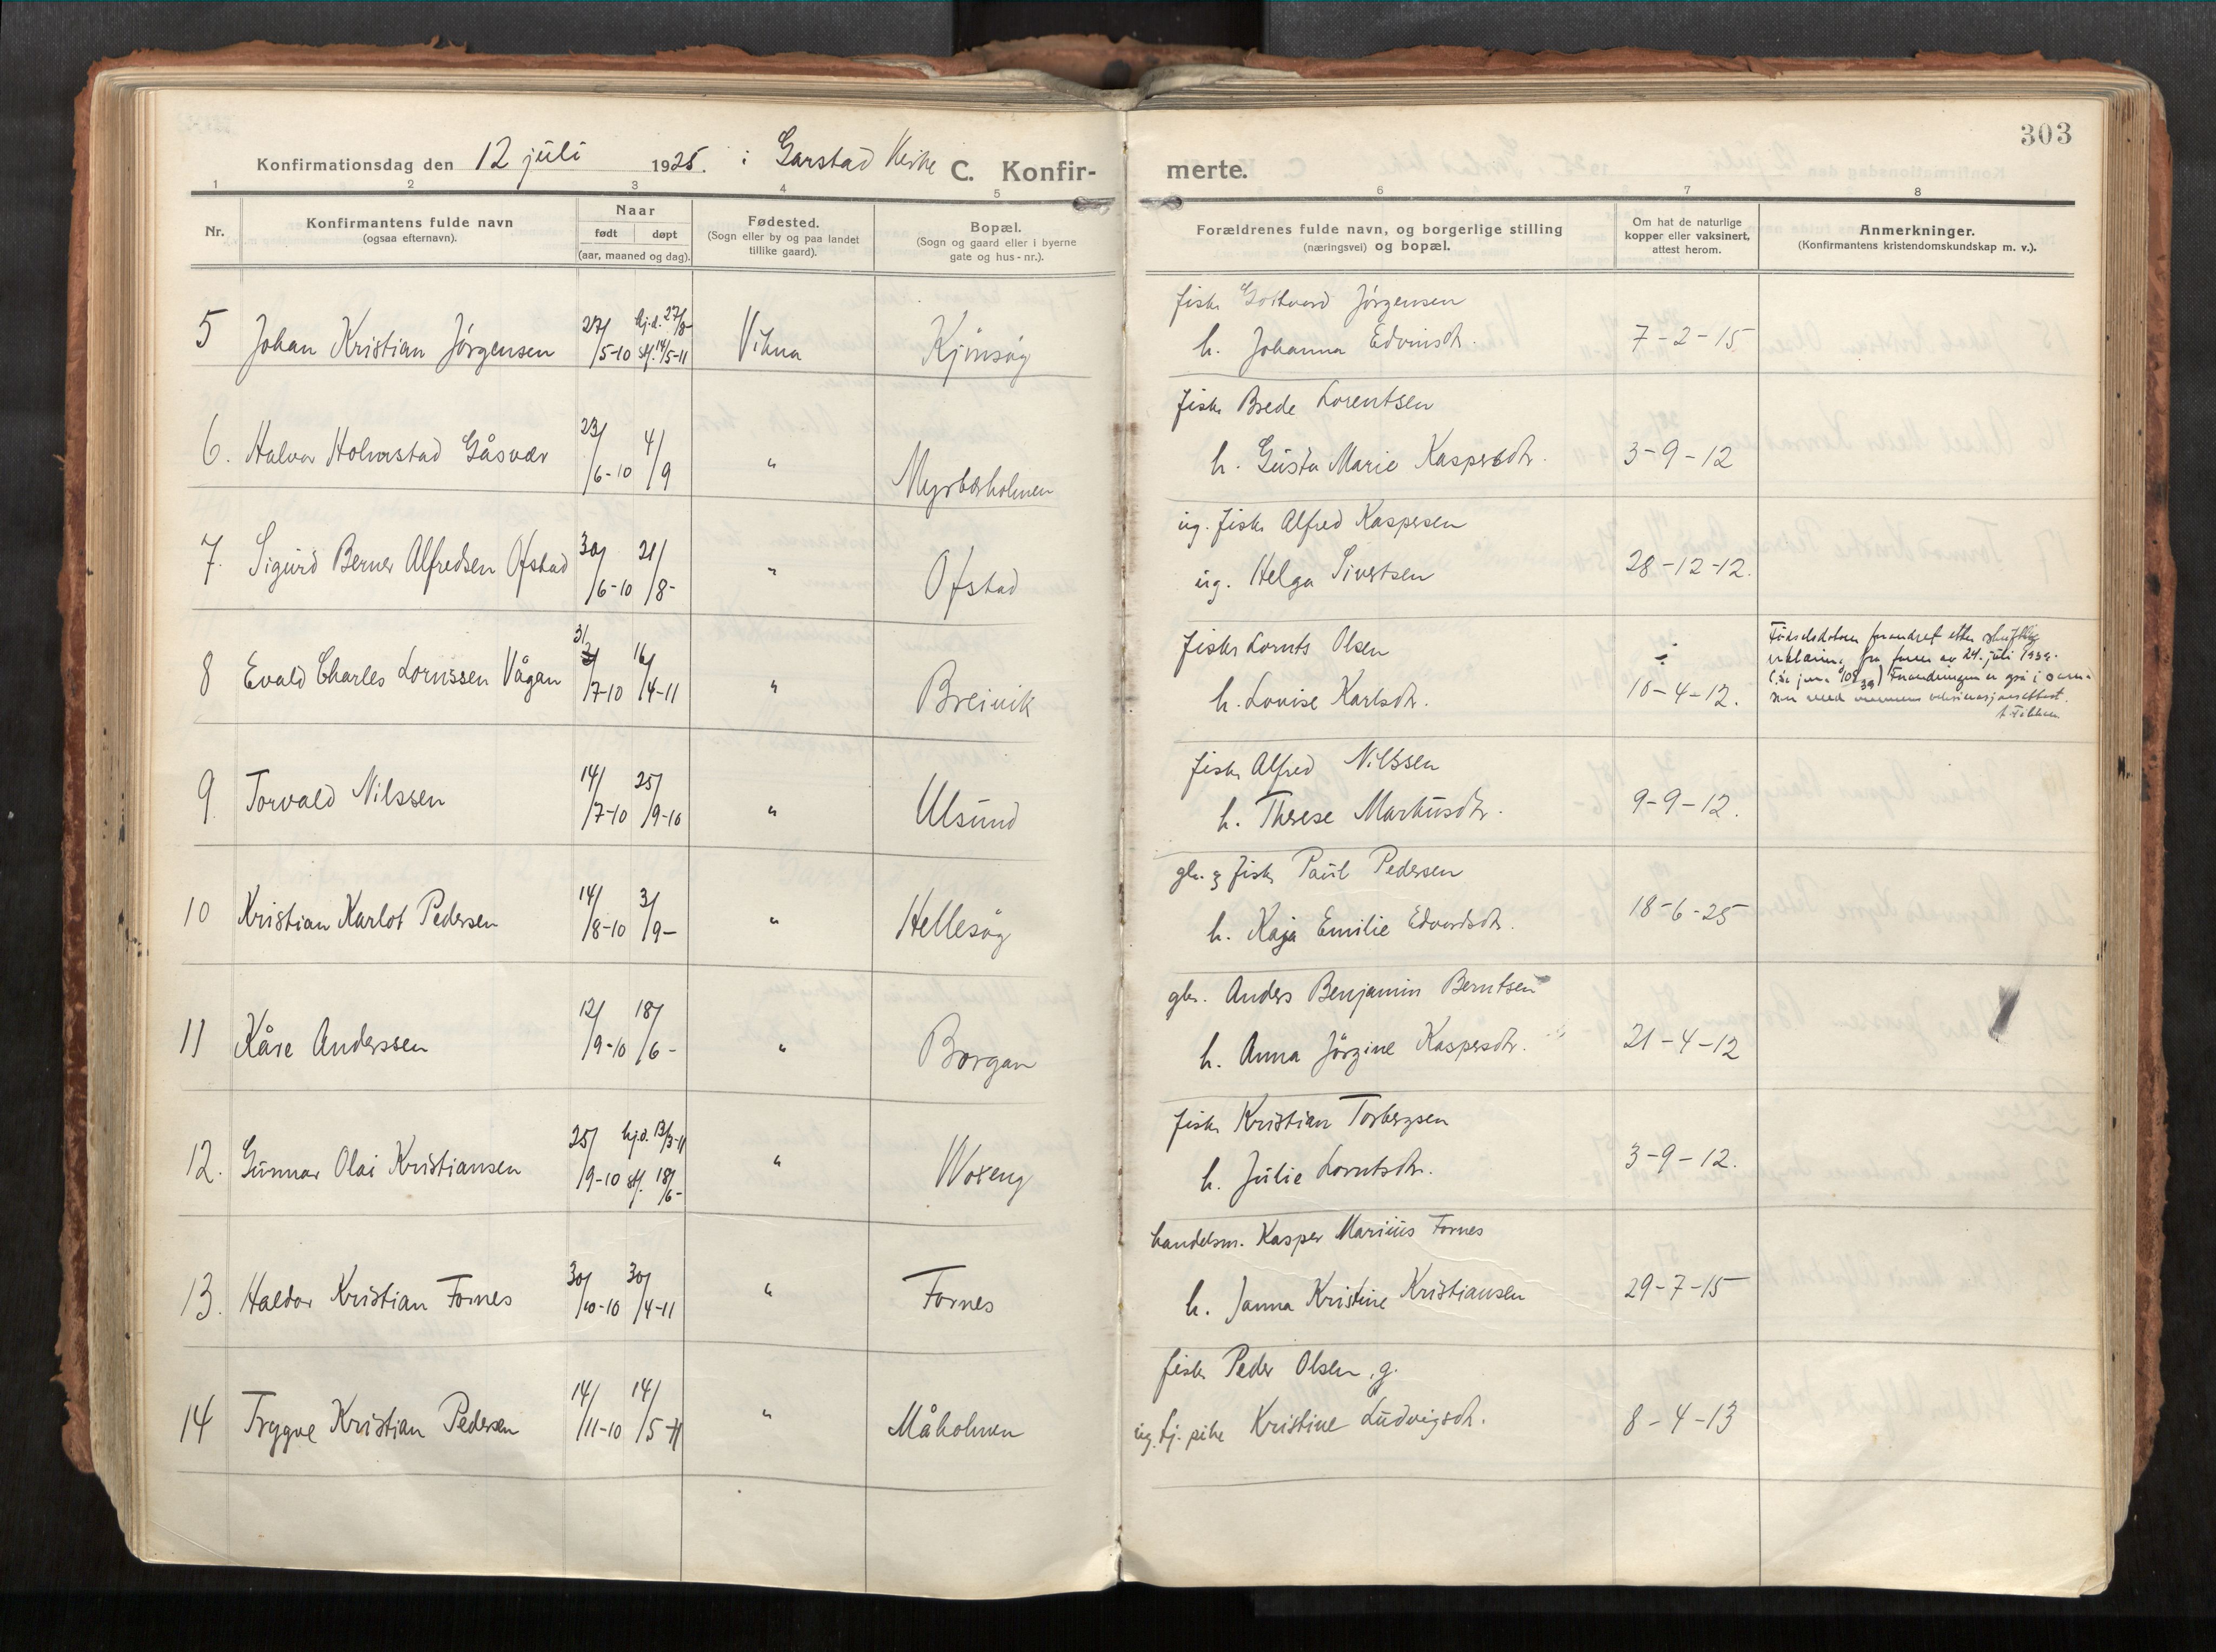 303
Konfirmationsdag den 12 juli 1925. i Garstad Kirke C. Konfir-
merte.
1 2 3 4 5 6 7 8
Nr.
Konfirmantens fulde navn
(ogsaa efternavn).
Naar
født døpt
(aar, maaned og dag).
Fødested.
(Sogn eller by og paa landet
tillike gaard).
Bopæl.
(Sogn og gaard eller i byerne
gate og hus-nr.).
Forældrenes fulde navn, og borgerlige stilling
(næringsvei) og bopæl.
Om hat de naturlige
kopper eller vaksinert,
attest herom.
Anmerkninger.
(Konfirmantens kristendomskundskap m. v.).
fisk. Gothard Jørgensen
5 Johan Kristian Jørgensen 27/5-10 hj.d. 27/8- stf. 14/5-11 Vikna Kjinsøy h. Johanna Edvinsdr. 7-2-15
fisk. Brede Lorentsen
6. Halvor Holmstad Gåsvær 23/6-10 4/9 " Myrbærholmen h. Gusta Marie Kaspersdr. 3-9-12
ug. fisk. Alfred Kaspersen
7. Sigurd Berner Alfredsen Ofstad 30/6-10 21/8- " Ofstad ug. Helga Sivertsen 28-12-12.
fisk. Lornts Olsen
8 Evald Charles Lorntssen Vågan 31/7-10 16/4-11 " Breivik h. Lovise Karlsdr. 16-4-12.
Fødselsdatoen forandret etter skriftlig
erklæring fra faren av 24. juli 1939.
fisk. Alfred Nilssen
9. Torvald Nilssen 14/7-10 25/9-10 " Ulsund h. Therese Markusdr. 9-9-12.
gbr. & fisk. Paul Pedersen
10 Kristian Karlot Pedersen 14/8-10 3/9- " Hellesøy h. Kaja Emilie Edvardsdr. 18-6-25
gbr. Anders Benjamin Berntsen
11 Kåre Anderssen 12/9-10 18/6- " Borgan h. Anna Jørgine Kaspersdr. 21-4-12
fisk. Kristian Torbergsen
12. Gunnar Olai Kristiansen 25/9-10 hj.d. 13/3-11 stf. 18/6- " Woxeng h. Julie Lorntsdr. 3-9-12.
handelsm. Kasper Marius Fornes
13. Haldor Kristian Fornes 30/10-10 30/4-11 " Fornes h. Janna Kristine Kristiansen 29-7-15
fisk. Peder Olsen, g.
14 Trygve Kristian Pedersen 14/11-10 14/5-11 " Måholmen ug. tj. pike Kristine Ludvigsdr. 8-4-13